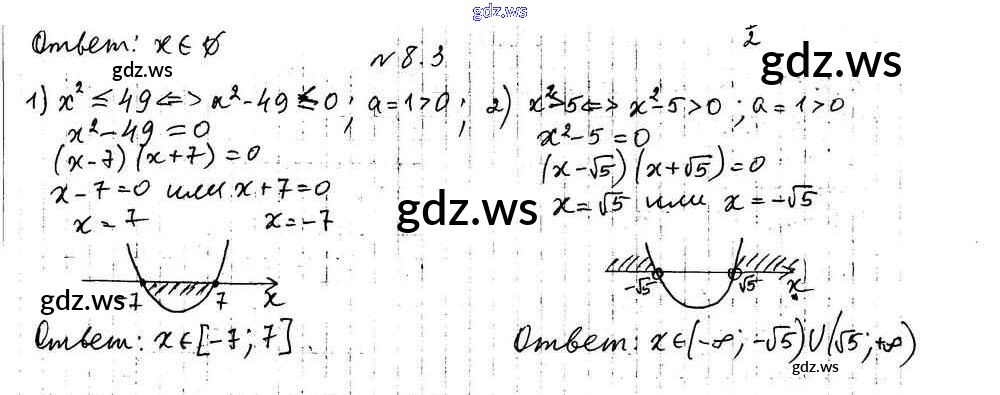 gdz.ws
Ответ: x ∈ ∅
gdz.ws
№ 8.3
2
gdz.ws
1) x² ≤ 49 <=> x² - 49 ≤ 0 ; a = 1 > 0 ;
x² - 49 = 0
(x - 7) (x + 7) = 0
x - 7 = 0 или x + 7 = 0
x = 7 x = -7
gdz.ws
-7 7 x
gdz.ws
Ответ: x ∈ [-7; 7]
2) x² > 5 <=> x² - 5 > 0 ; a = 1 > 0
x² - 5 = 0
(x - √5) (x + √5) = 0
x = √5 или x = -√5
-√5 √5 x
gdz.ws
Ответ: x ∈ (-∞; -√5) U (√5; +∞)
gdz.ws